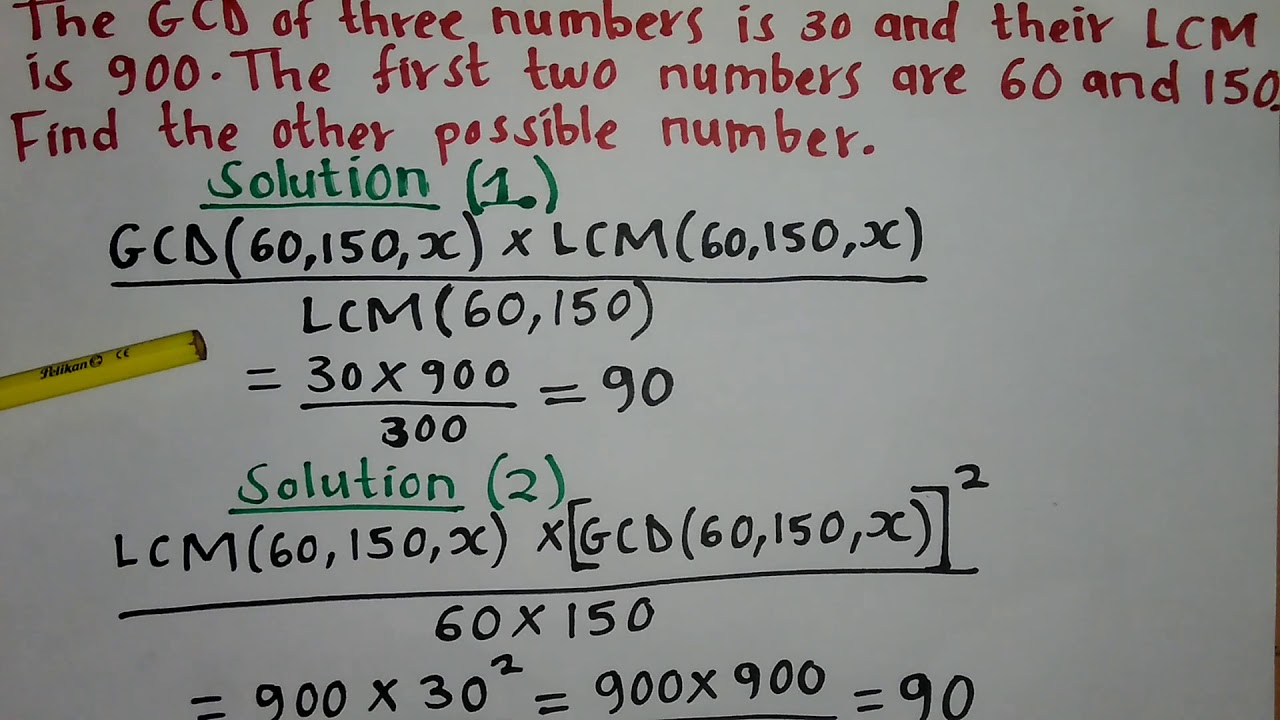 The GCD of three numbers is 30 and their LCM
is 900. The first two numbers are 60 and 150.
Find the other possible number.
Solution (1.)
GCD(60,150,x) x LCM(60,150,x)
LCM(60,150)
Pelikan CE
= 30 X 900 = 90
300
Solution (2)
LCM(60,150,x) x[GCD(60,150,x)]²
60 X 150
= 900 X 30² = 900X 900 = 90